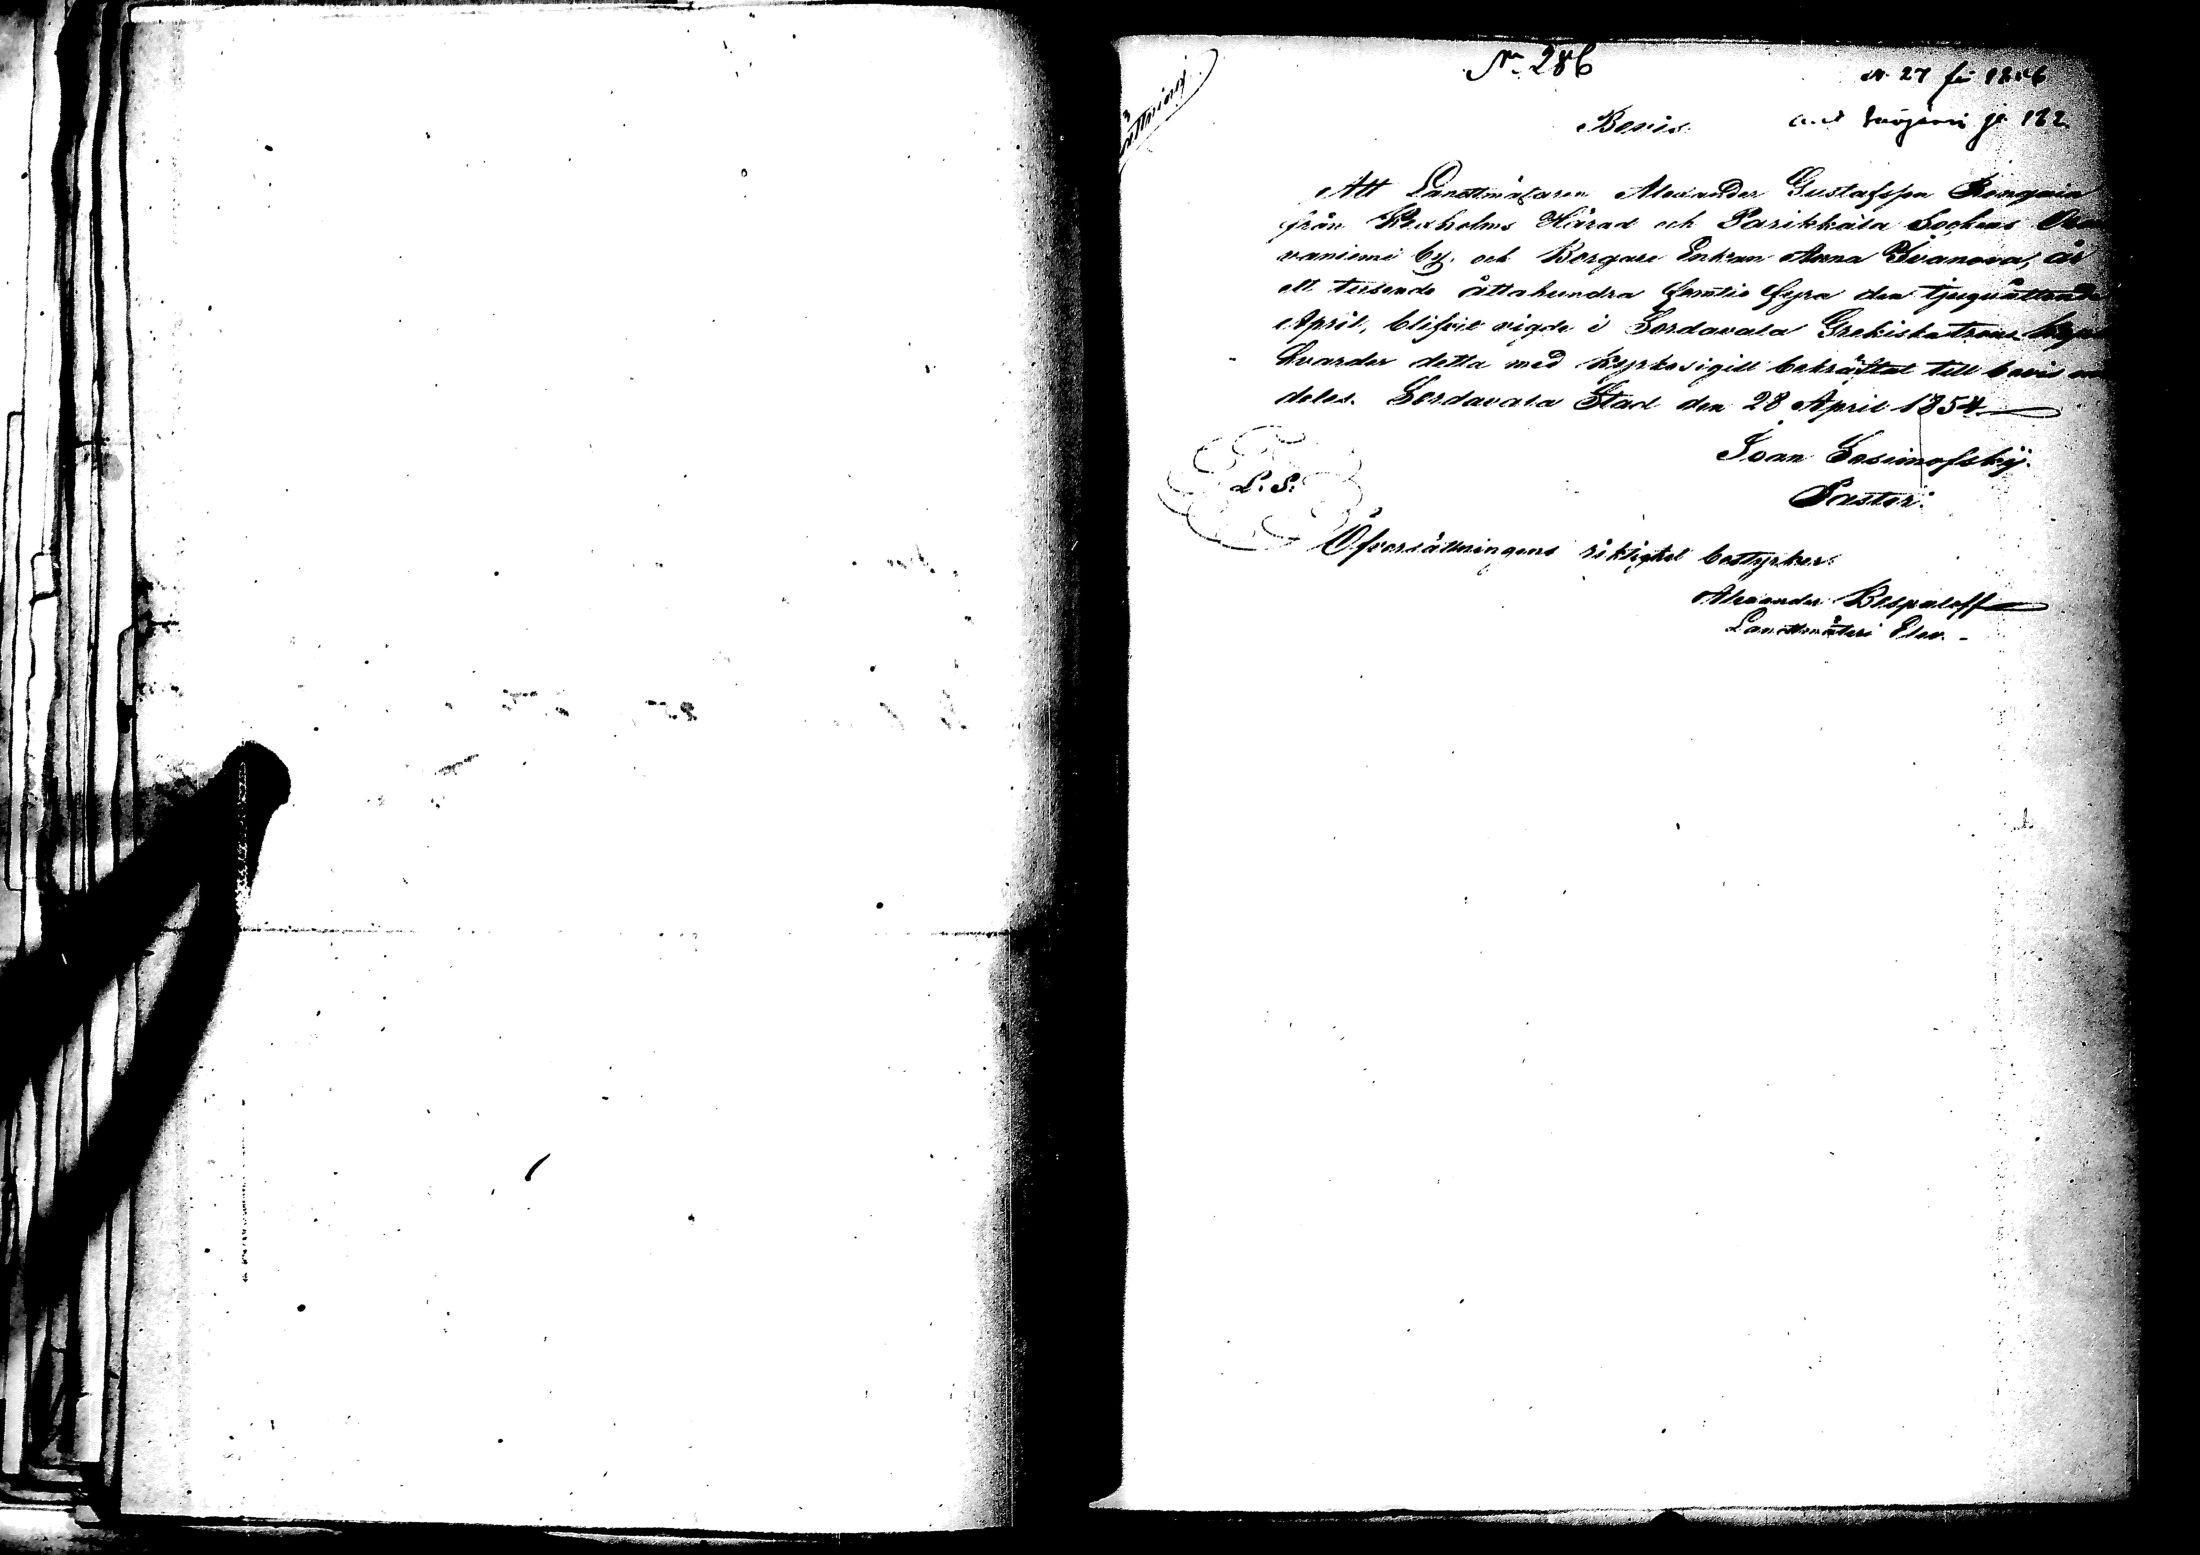 No 286
N 27 för 1856
Bevis.
Att Landtmätaren Alexander Gustafsson Rongain
från Kexholms Härad och Parikkala Sockens
vaniemi by, och Borgare Enkan Anna Ivanova, år
ett tusende åttahundra femtio fyra den tjuguåttonde
April, blifvit vigde i Sordavala Grekiska
hvarder detta med Kyrkosigill bekräftat till bevis
deles. Sordavala Stad den 28 April 1854
Ioan Sosimofskÿ.
Pastor.
L. S.
Öfversättningens riktighet bestyrker:
Alexander Bespaloff
Landtmäteri Elev.